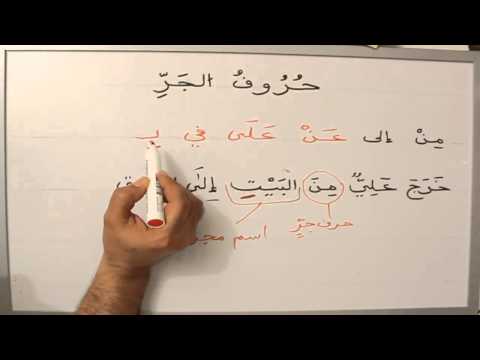 حُرُوفُ الجَرِّ
مِنْ إلى عَنْ عَلَى في لِ
خَرَجَ عَلِيٌّ مِنَ البَيْتِ إِلَى
حرف جرٍّ
اسم